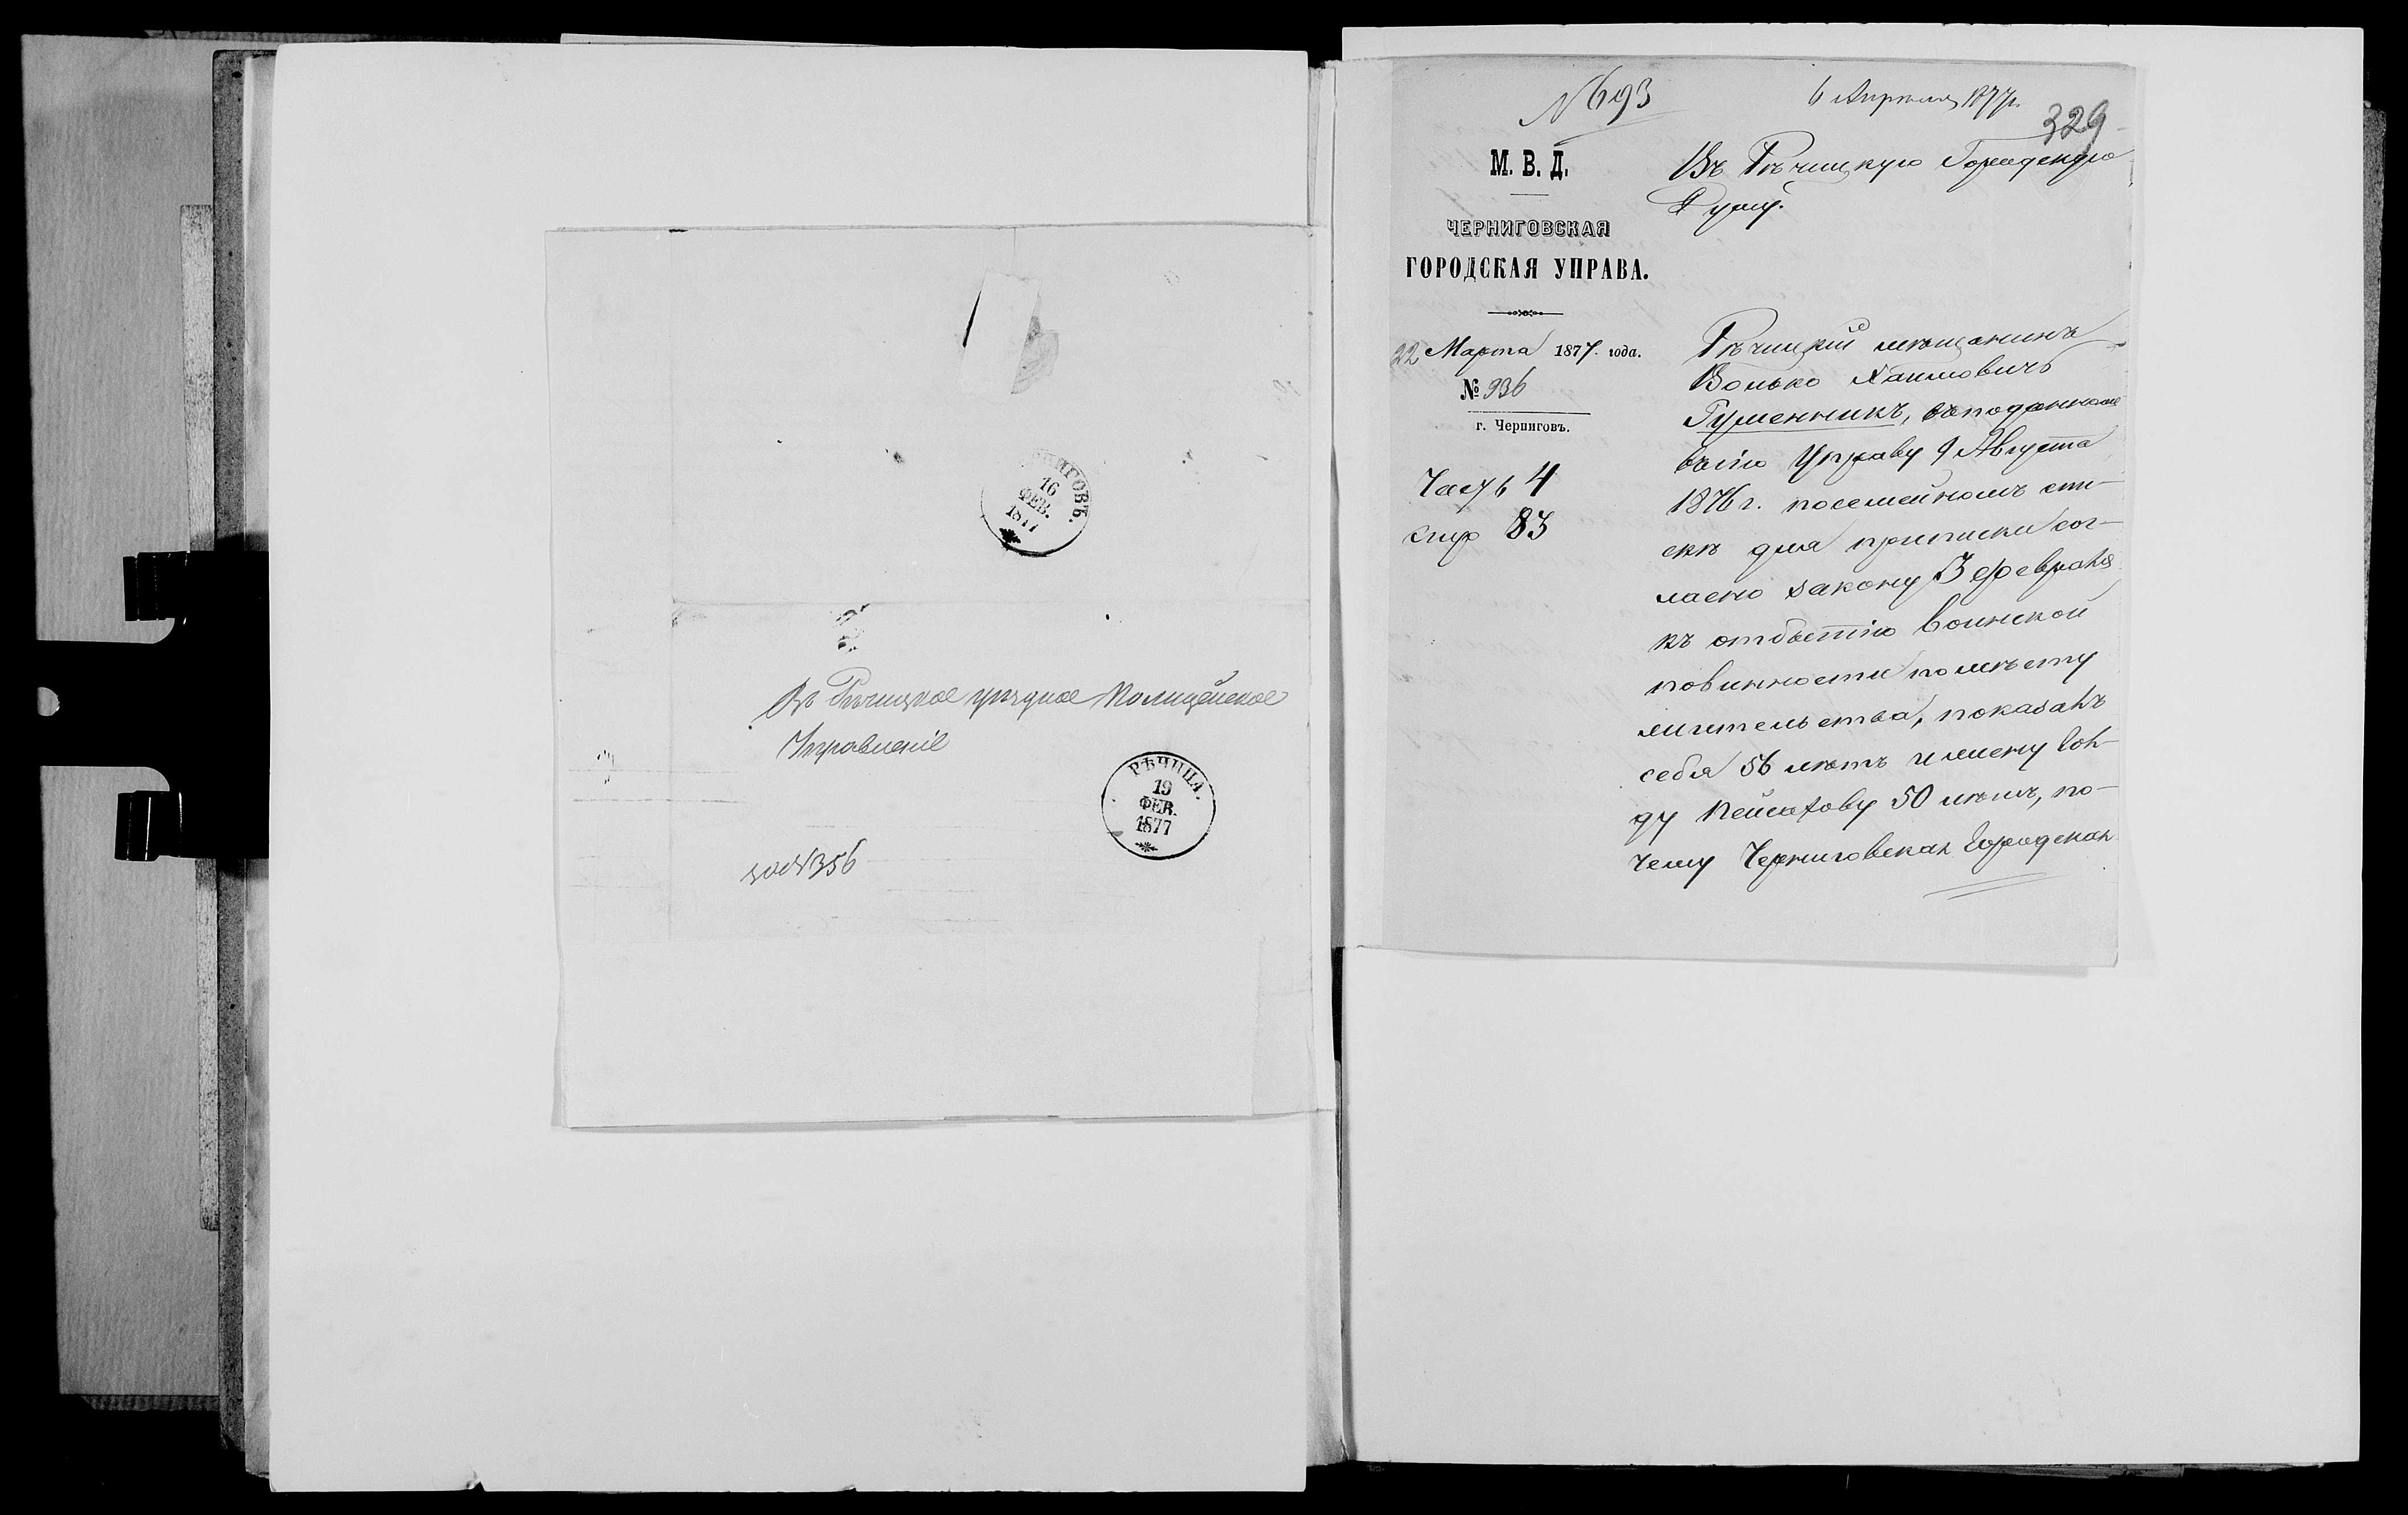 ЧЕРНИГОВЪ.
16
ФЕВ.
1877
Въ Рѣчицкое уѣздное Полицейское
Управленіе
РѢЧИЦА.
19
ФЕВ.
1877
356
№ 693
6 Апрѣля 1877 г.
329
М. В. Д.
ЧЕРНИГОВСКАЯ
ГОРОДСКАЯ УПРАВА.
22 Марта 1877. года.
№ 936
г. Черниговъ.
Часть 4
стр 83
Въ Рѣчицкую Городскую
Думу.
Рѣчицкій мѣщанинъ
Волько Хаимовичъ
Гуменникъ, въ поданномъ
въ сію Управу 9 Августа
1876 г. посемейномъ спи-
скѣ для приписки сог-
ласно закону 3 февраля
къ отбытію воинской
повинности по мѣсту
жительства, показалъ
себя 56 лѣтъ и жену Соль-
ду 50 лѣтъ, по-
чему Черниговская Городская